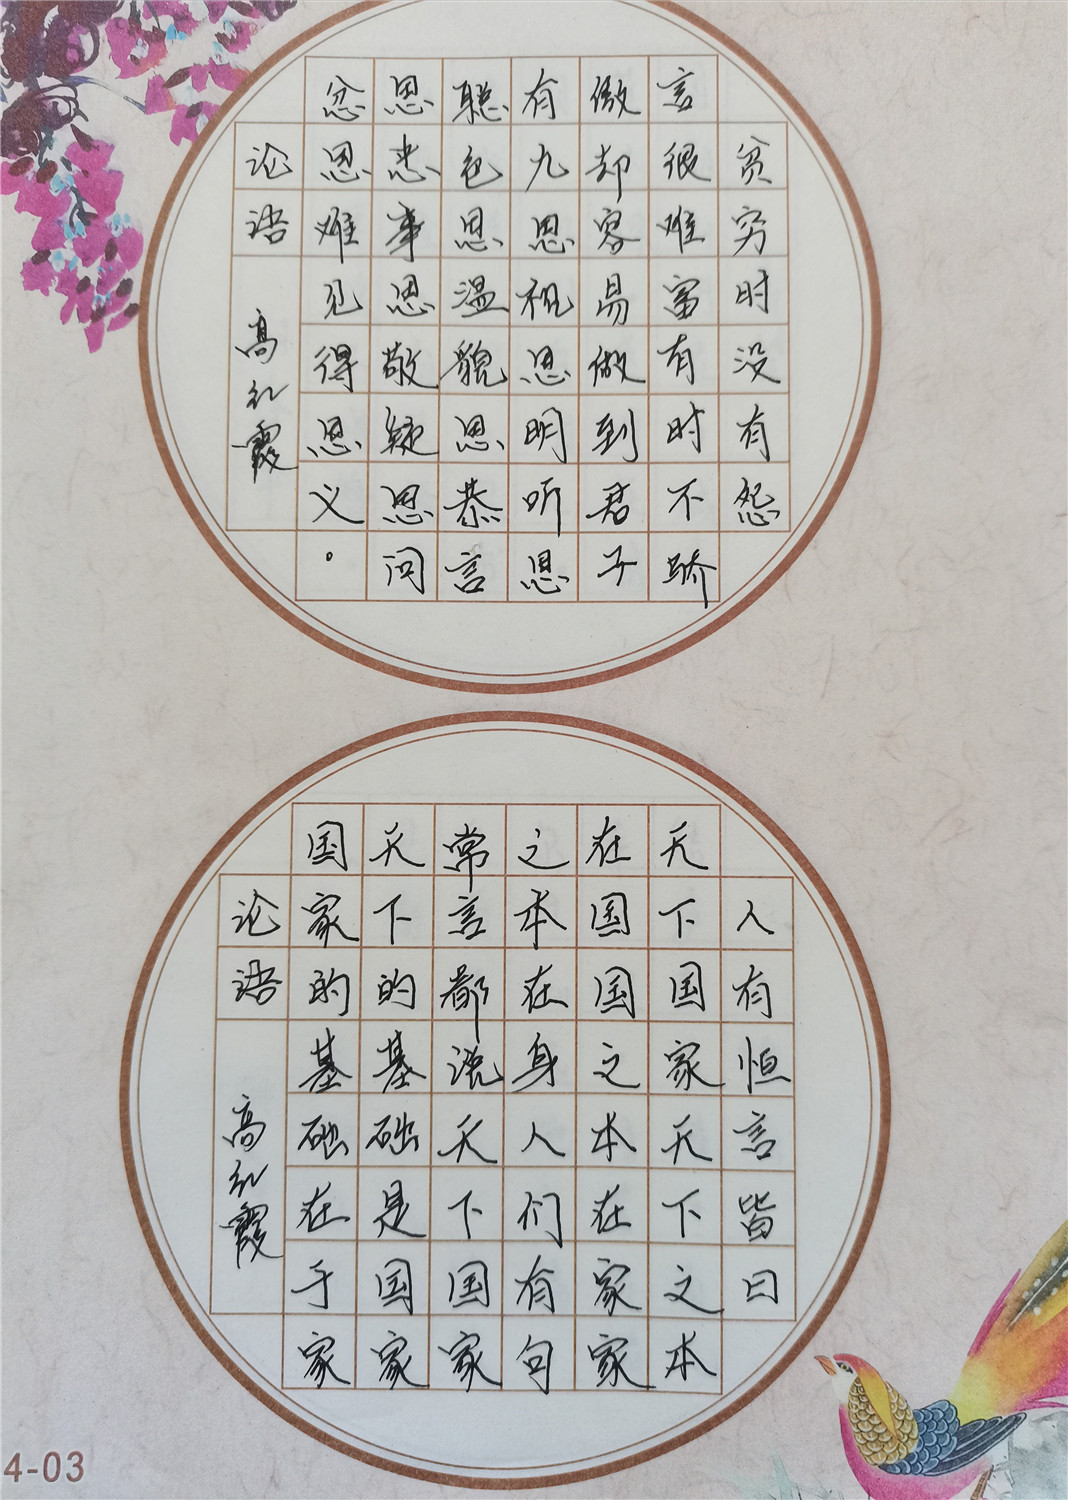 贫穷时没有怨
言很难富有时不骄
傲却容易做到君子
有九思视思明听思
聪色思温貌思恭言
思忠事思敬疑思问
忿思难见得思义。
论语
高红霞
人有恒言皆曰
天下国家天下之本
在国国之本在家家
之本在身人们有句
常言都说天下国家
天下的基础是国家
国家的基础在于家
论语
高红霞
4-03